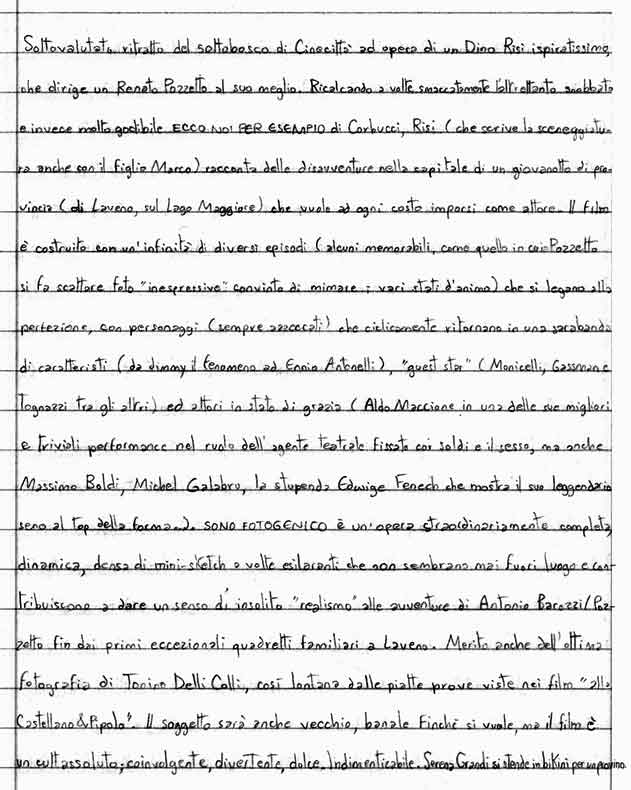 Sottovalutato ritratto del sottobosco di Cinecittà ad opera di un Dino Risi ispiratissimo,
che dirige un Renato Pozzetto al suo meglio. Ricalcando a volte smaccatamente l'altrettanto snobbato
e invece molto godibile ECCO NOI PER ESEMPIO di Corbucci, Risi (che scrive la sceneggiatu-
ra anche con il figlio Marco) racconta delle disavventure nella capitale di un giovanotto di pro-
vincia (di Laveno, sul Lago Maggiore) che vuole ad ogni costo imporsi come attore. Il film
è costruito con un'infinità di diversi episodi (alcuni memorabili, come quello in cui Pozzetto
si fa scattare foto "inespressive" convinto di mimare i vari stati d'animo) che si legano alla
perfezione, con personaggi (sempre azzeccati) che ciclicamente ritornano in una sarabanda
di caratteristi (da Jimmy il fenomeno ad Ennio Antonelli), "guest star" (Monicelli, Gassman e
Tognazzi tra gli altri) ed attori in stato di grazia (Aldo Maccione in una delle sue migliori
e triviali performance nel ruolo dell'agente teatrale fissato coi soldi e il sesso, ma anche
Massimo Boldi, Michel Galabru, la stupenda Edwige Fenech che mostra il suo leggendario
seno al top della forma...). SONO FOTOGENICO è un'opera straordinariamente completa,
dinamica, densa di mini-sketch a volte esilaranti che non sembrano mai fuori luogo e con-
tribuiscono a dare un senso di insolito "realismo" alle avventure di Antonio Barozzi/Poz-
zetto fin dai primi eccezionali quadretti familiari a Laveno. Merito anche dell'ottima
fotografia di Tonino Delli Colli, così lontana dalle piatte prove viste nei film "alla
Castellano & Pipolo". Il soggetto sarà anche vecchio, banale finchè si vuole, ma il film è
un cult assoluto; coinvolgente, divertente, dolce. Indimenticabile. Serena Grandi si stende in bikini per un provino.